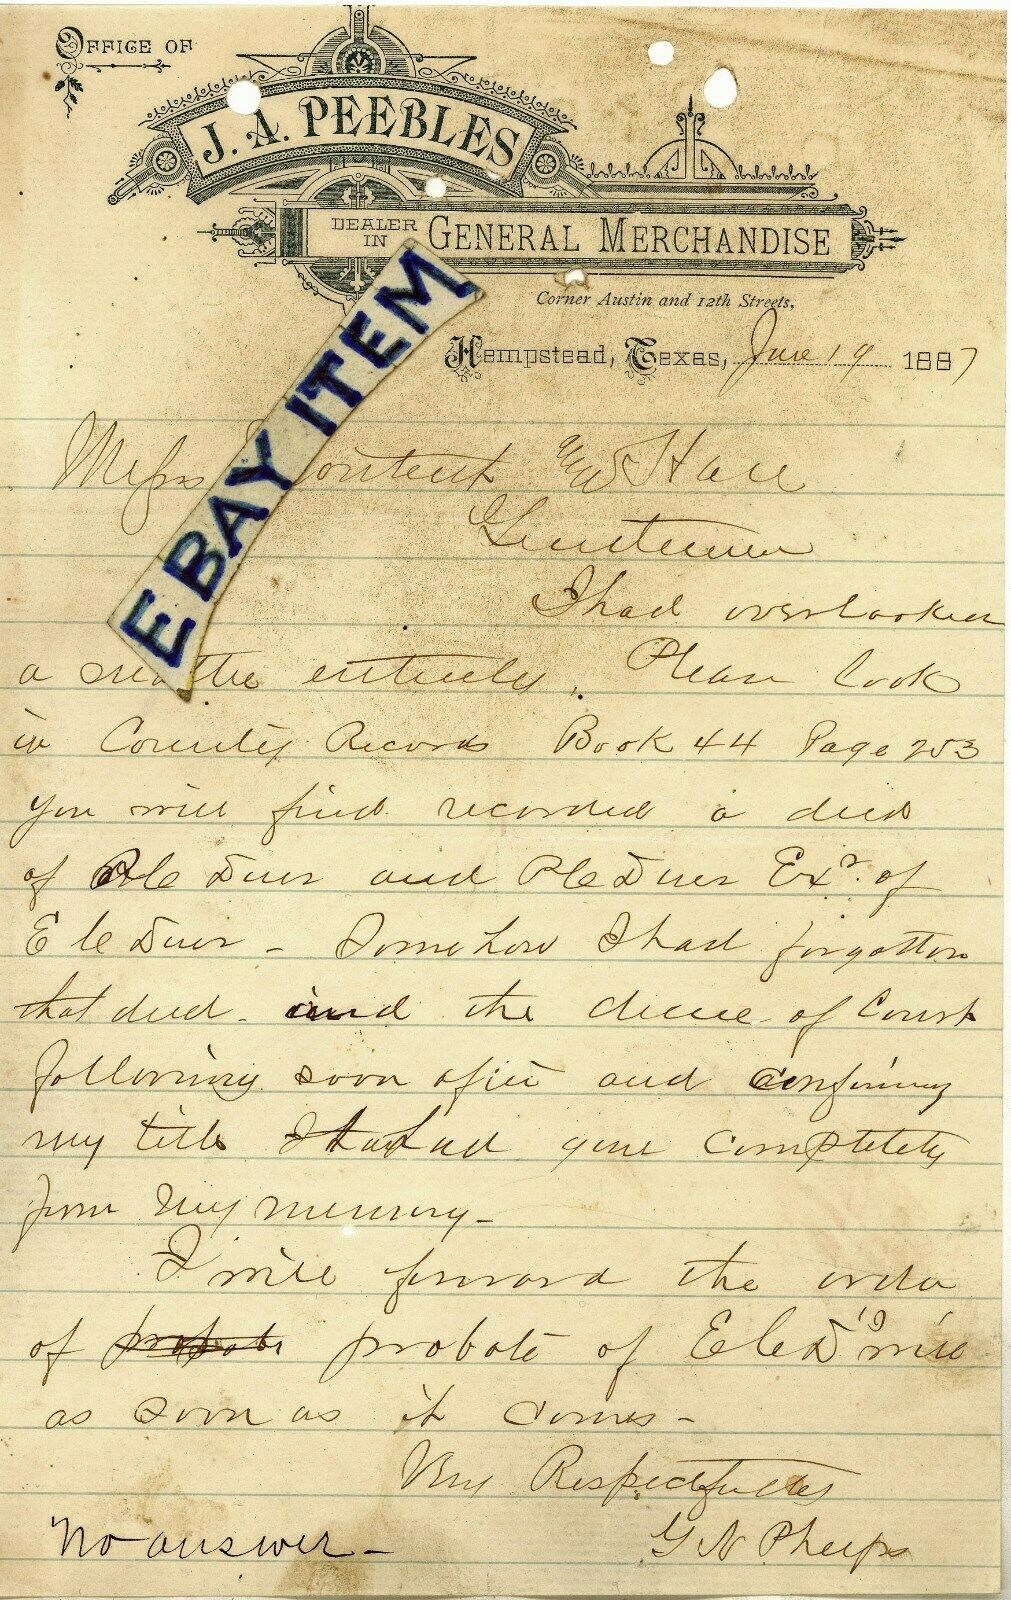 OFFICE OF
J. A. PEEBLES
DEALER IN GENERAL MERCHANDISE
Corner Austin and 12th Streets.
Hempstead, Texas, June 19 1887
EBAY ITEM
Mess
Gentlemen
I had overlooked
a matter entirely. Please look
in County Records Book 44 Page 253
you will find recorded a deed
of and Exr. of
Somehow I had forgotten
that deed and the decree of Court
following soon after and confirming
my title had gone completely
from my memory -
I will forward the order
of probate of will
as soon as it comes -
Very Respectfully
G N Phelps
No answer -